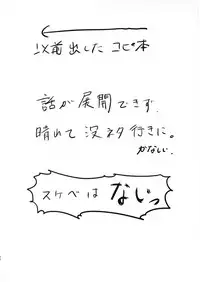 以前出した コピ本
話が展開できず、
晴れて没ネタ行きに。
かなしい。
スケベは ないっ